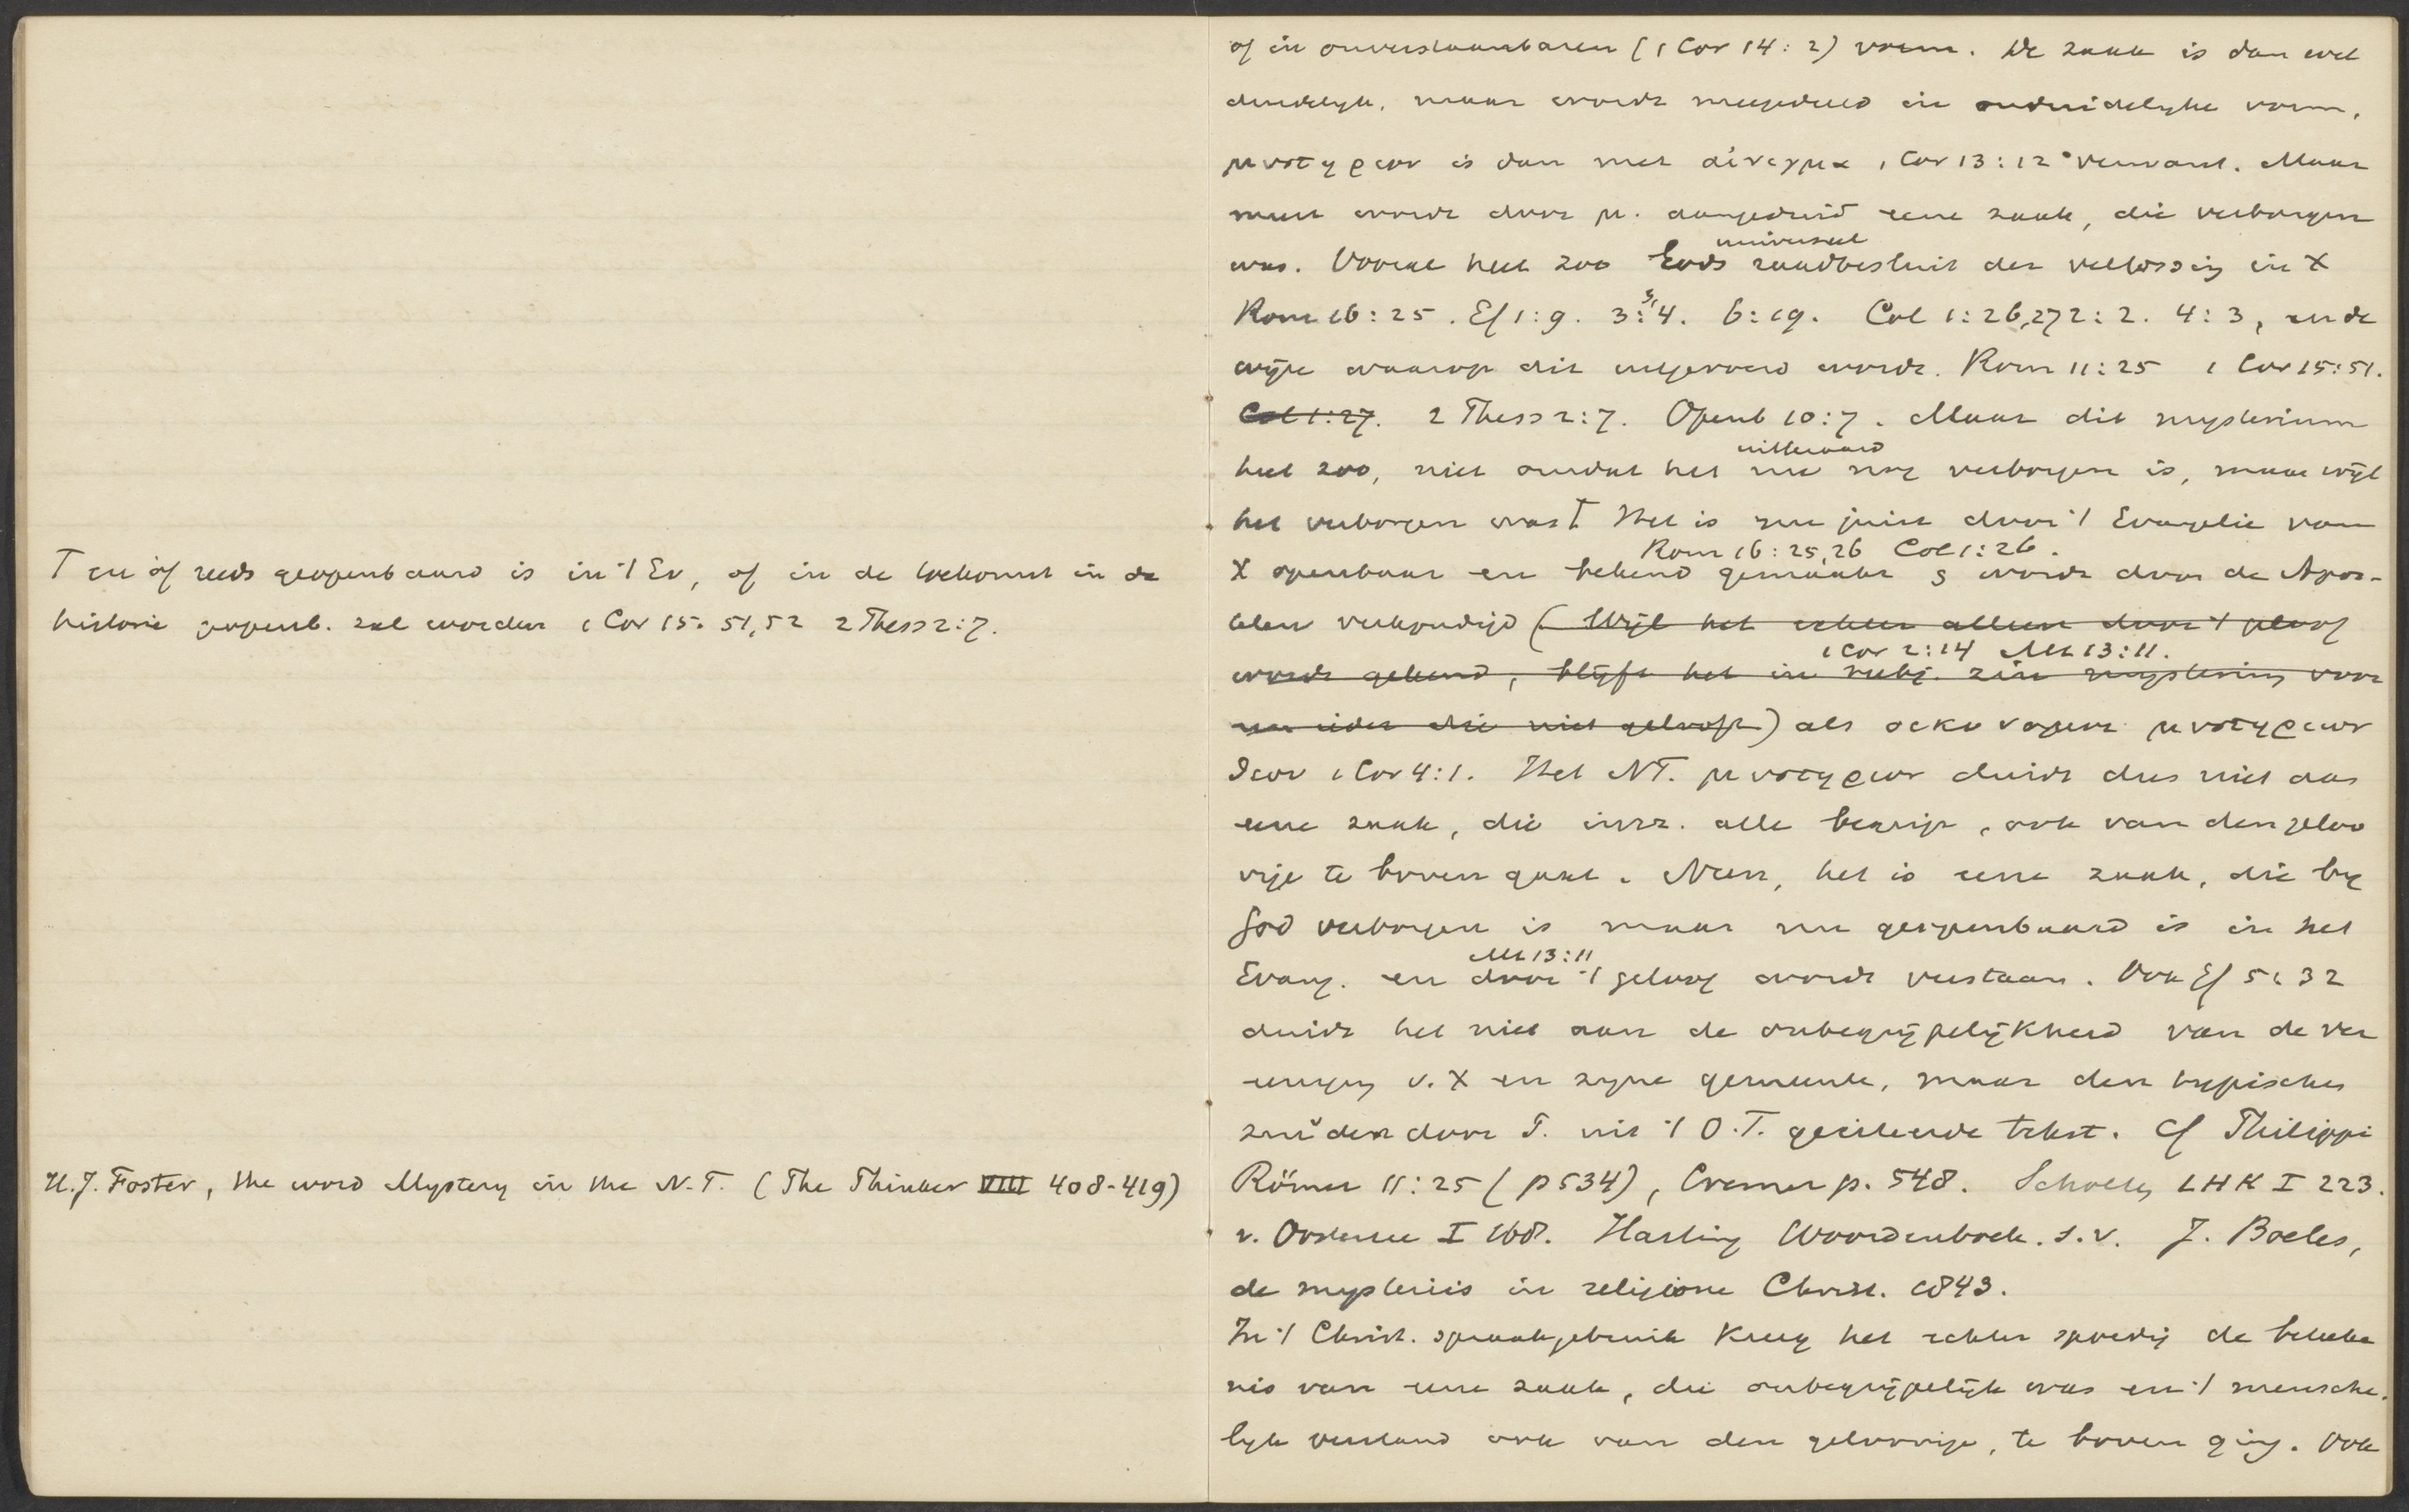 T en òf reeds geopenbaard is in 't Ev, of in de toekomst in de
historie geopenb. zal worden 1 Cor 15:51,52 2 Thess 2:7.
H.J. Foster, the word Mystery in the N.T. (The Thinker VIII 408-419)
of in onverstaanbaren (1 Cor 14:2) vorm. De zaak is dan wel
duidelijk, maar wordt meegedeeld in onduidelyke vorm,
μυστηριον is dan met αἰνιγμα 1 Cor 13:12 verwant. Maar
meest wordt door μ. aangeduid eene zaak, die verborgen
universeel
was. Vooral heet zoo Gods raadbesluit der verlossing in X
Rom 16:25. Ef 1:9. 3:3,4. 6:19. Col 1:26,27 2:2. 4:3, en de
wijze waarop dit uitgevoerd wordt. Rom 11:25 1 Cor 15:51.
Col 1:27. 2 Thess 2:7. Openb 10:7. Maar dit mysterium
uitteraard
heet zoo, niet omdat het nu nog verborgen is, maar wijl
het verborgen was T Het is nu juist door 't Evangelie van
Rom 16:25,26 Col 1:26.
X openbaar en bekend gemaakt & wordt door de Apos-
telen verkondigd (Wijl het echter alleen door 't geloof
1 Cor 2:14 Mt 13:11.
wordt gekend, blijft het in subj. zin mysterium voor
een ieder die niet gelooft) als οἰκονομοι μυστηριων
θεου 1 Cor 4:1. Het N.T. μυστηριον duidt dus niet aan
eene zaak, die alle begrip, ook van den geloo
vige te boven gaat. Neen, het is eene zaak, die by
God verborgen is maar nu geopenbaard is in het
Mt 13:11
Evang. en door 't geloof wordt verstaan. Ook Ef 5:32
duidt het niet aan de onbegrijpelijkheid van de ver
eeniging v. X en zyne gemeente, maar den typischen
zin v den door P. uit 't O.T. geciteerde tekst. Cf Philippi
Römer 11:25 (p 534), Cremer p. 548. Scholten LHK I 223.
v. Oosterzee I 168. Harting Woordenboek. s.v. J. Boeles,
de mysteriis in religione Christ. 1843.
In 't Christ. spraakgebruik kreeg het echter spoedig de beteeke
nis van eene zaak, die onbegrijpelijk was en 't mensche-
lyk verstand ook van den geloovige, te boven ging. Ook